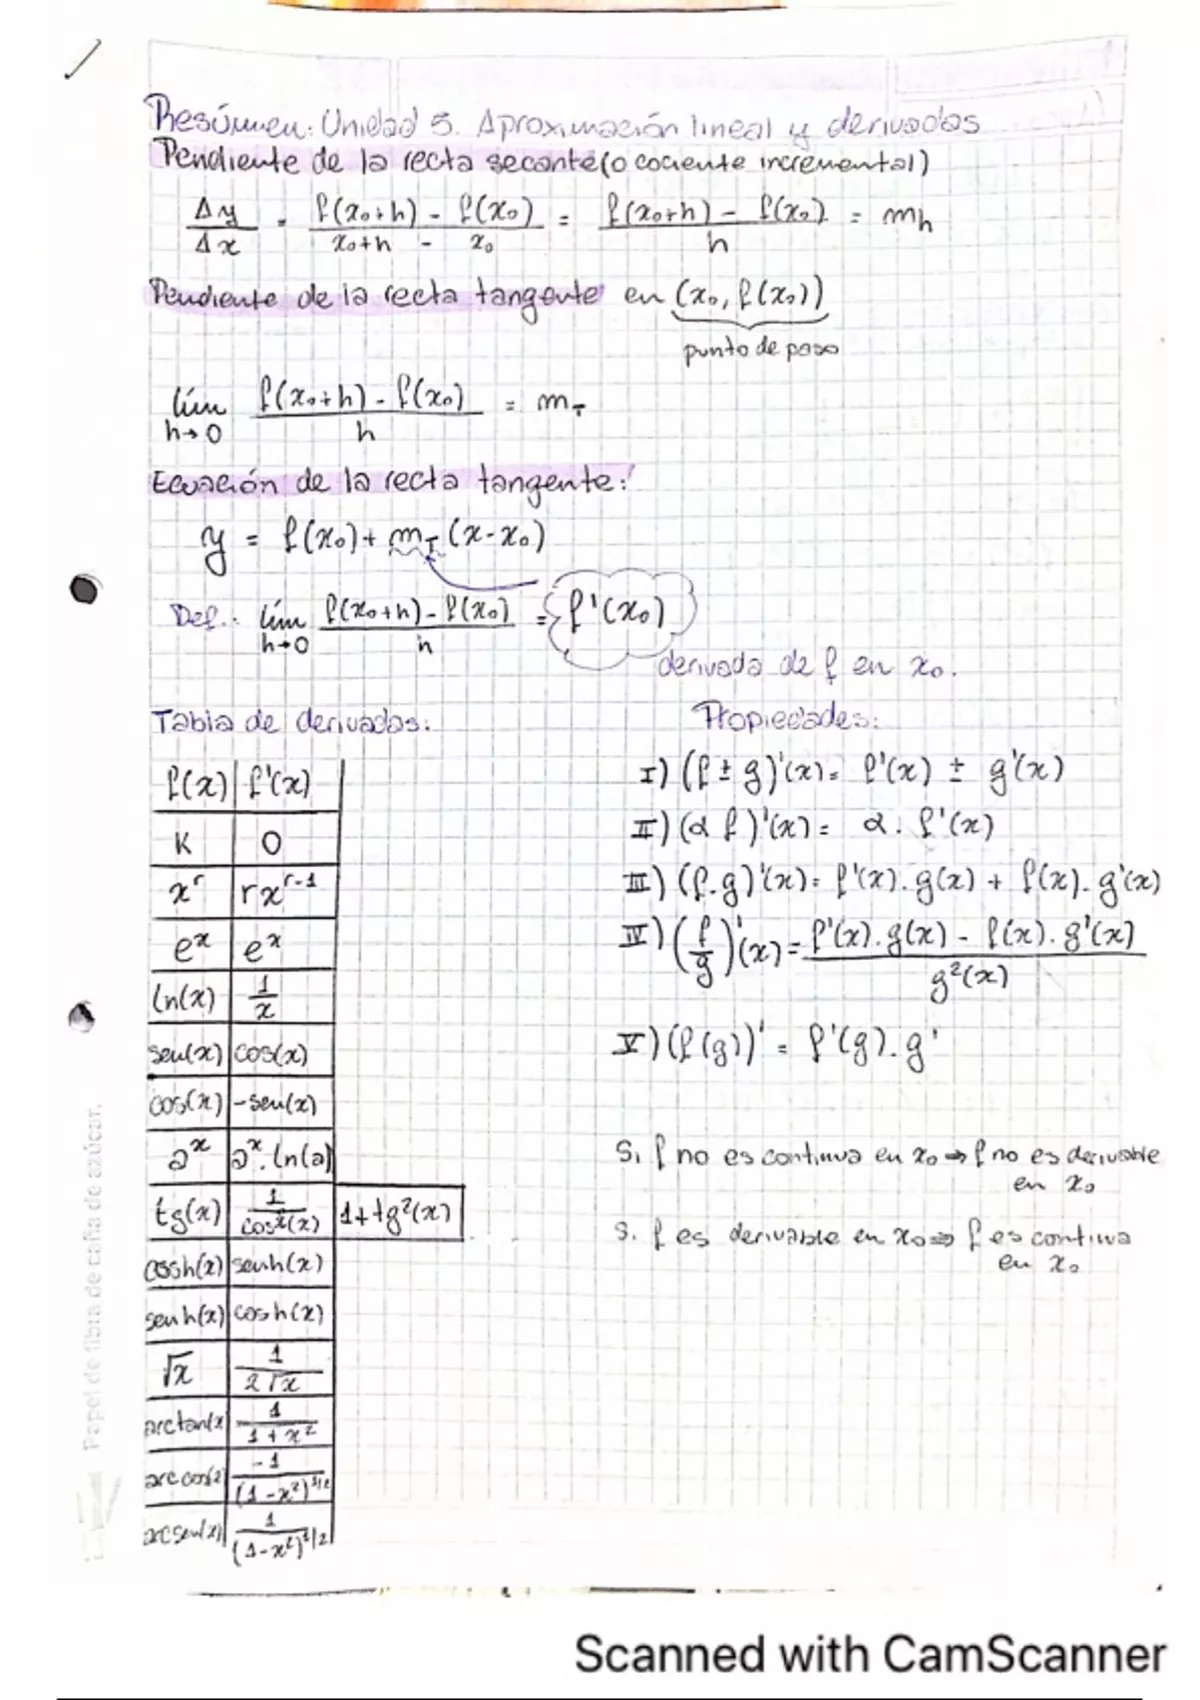 Resúmen: Unidad 5. Aproximación lineal y derivadas
Pendiente de la recta secante (o cociente incremental)
Δy/Δx = (f(x₀+h) - f(x₀))/(x₀+h - x₀) = (f(x₀+h) - f(x₀))/h = mₕ
Pendiente de la recta tangente en (x₀, f(x₀))
punto de paso
lím h→0 (f(x₀+h) - f(x₀))/h = m_T
Ecuación de la recta tangente:
y = f(x₀) + m_T (x-x₀)
Def.: lím h→0 (f(x₀+h) - f(x₀))/h = f'(x₀)
derivada de f en x₀.
Tabla de derivadas:
f(x) | f'(x)
K | 0
xʳ | r xʳ⁻¹
eˣ | eˣ
ln(x) | 1/x
sen(x) | cos(x)
cos(x) | -sen(x)
aˣ | aˣ. ln(a)
tg(x) | 1/cos²(x) | 1+tg²(x)
cosh(x) | senh(x)
senh(x) | cosh(x)
√x | 1/(2√x)
arctan(x) | 1/(1+x²)
arccos(x) | -1/(1-x²)^1/2
arcsen(x) | 1/(1-x²)^1/2
Propiedades:
I) (f ± g)'(x) = f'(x) ± g'(x)
II) (α f)'(x) = α. f'(x)
III) (f.g)'(x) = f'(x). g(x) + f(x). g'(x)
IV) (f/g)'(x) = (f'(x). g(x) - f(x). g'(x))/g²(x)
V) (f(g))' = f'(g). g'
Si f no es continua en x₀ ⇒ f no es derivable
en x₀
Si f es derivable en x₀ ⇒ f es continua
en x₀
Papel de fibra de caña de azúcar.
Scanned with CamScanner